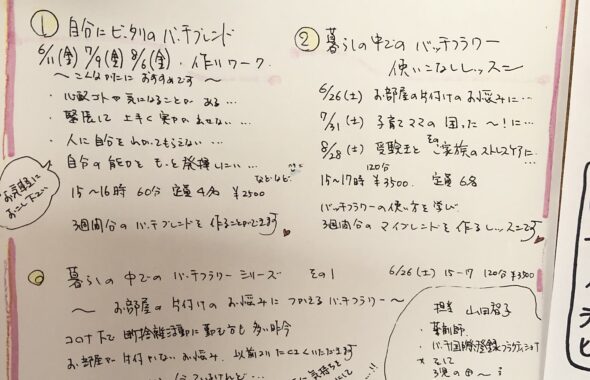 ① 自分にピッタリのバッチブレンド
6/11(金) 7/9(金) 8/6(金)・作りワーク
〜こんな方におすすめです〜
・心配ゴトや気になることがある…
・緊張して上手く実力が出せない…
・人に自分をわかってもらえない…
・自分の能力をもっと発揮したい…
などなど
15〜16時 60分 定員4名 ¥2500
3週間分のバッチブレンドを作ることができます
お気軽に
おこし下さい
② 暮らしの中でのバッチフラワー
使いこなしレッスン
6/26(土) お部屋の片付けのお悩みに…
7/31(土) 子育てママの困った〜！に…
8/28(土) 受験生とそのご家族のストレスケアに…
120分
15〜17時 ¥3500. 定員6名
バッチフラワーの使い方を学び
3週間分のマイブレンドを作るレッスンです
暮らしの中でのバッチフラワーシリーズ その1
6/26(土) 15-17 120分 ¥3500
〜お部屋の片付けのお悩みにつかえるバッチフラワー〜
コロナ下で断捨離活動に勤しむ方も多い昨今
お部屋が片付かないお悩み、以前よりたくさんいただきます
担当 山田
・薬剤師
・バッチ国際登録プラクティショナー
そして
3児の母〜